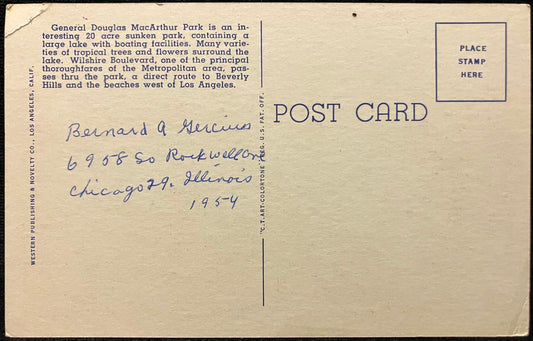 General Douglas MacArthur Park is an in-
teresting 20 acre sunken park, containing a
large lake with boating facilities. Many varie-
ties of tropical trees and flowers surround the
lake. Wilshire Boulevard, one of the principal
thoroughfares of the Metropolitan area, pas-
ses thru the park, a direct route to Beverly
Hills and the beaches west of Los Angeles.
WESTERN PUBLISHING & NOVELTY CO., LOS ANGELES, CALIF.
Bernard A Gercius
6958 So Rockwell
Chicago 29. Illinois
1954
"C.T. ART-COLORTONE" REG. U.S. PAT. OFF.
POST CARD
PLACE
STAMP
HERE